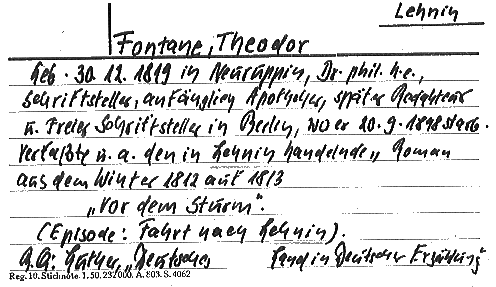 Lehnin
Fontane, Theodor
Geb. 30.12.1819 in Neuruppin, Dr. phil. h.c.,
Schriftsteller, anfänglich Apotheker, später Redakteur
u. freier Schriftsteller in Berlin, wo er 20.9.1898 starb.
Verfaßte u. a. den in Lehnin handelnde „Roman
aus dem Winter 1812 auf 1813
„Vor dem Sturm".
(Episode: Fahrt nach Lehnin).
Luther, „Deutsches Land in Deutscher Erzählung"
Reg. 10. Stichnote. 1. 50. 232000. A. 803. S. 4062